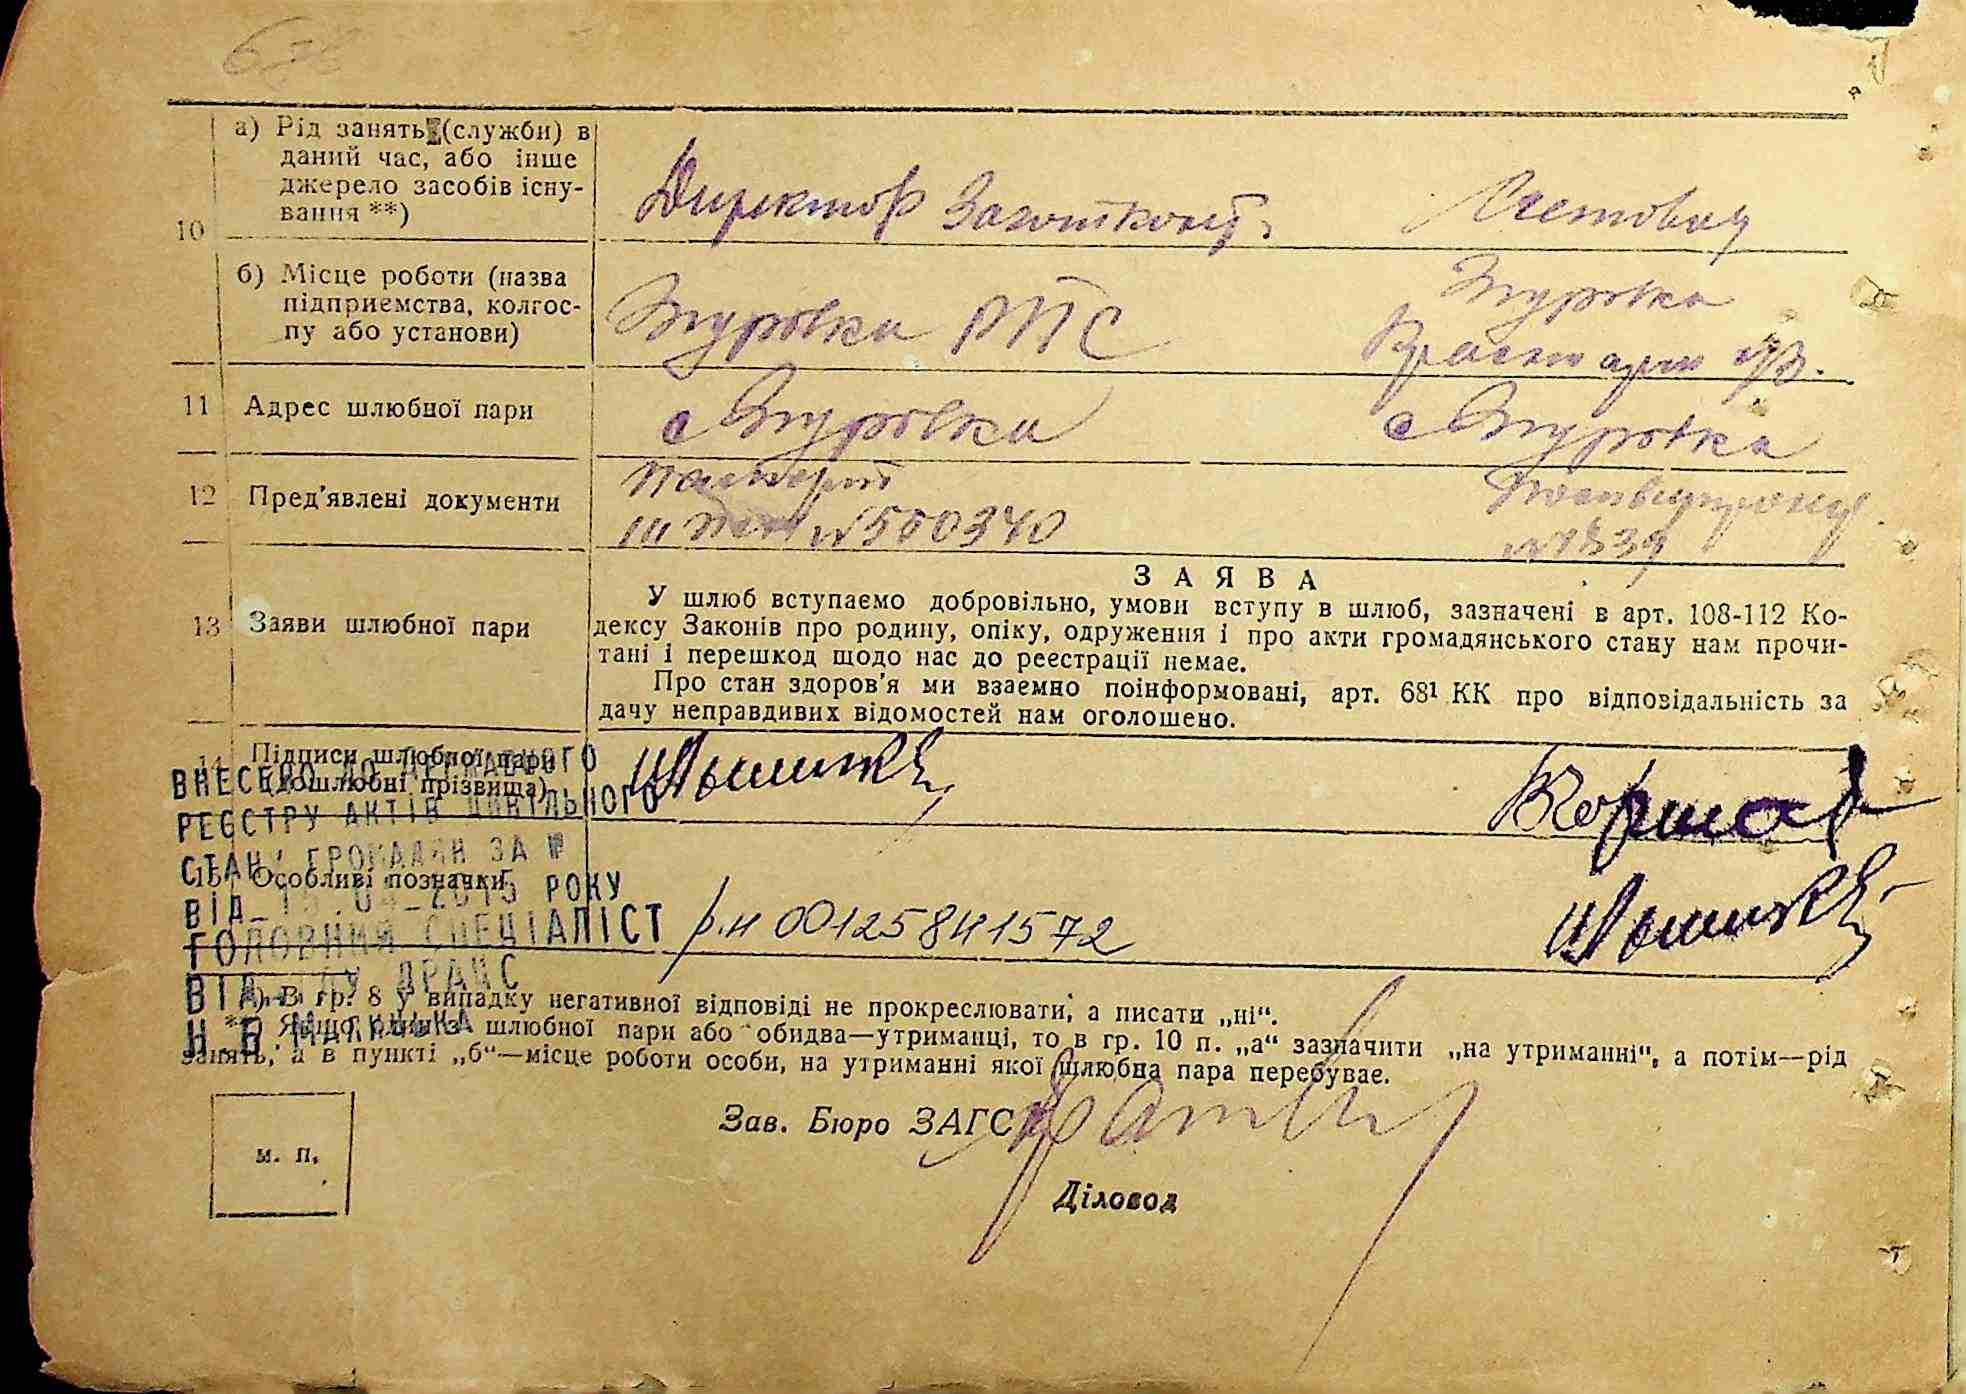 678
а) Рід занять (служби) в
даний час, або інше
джерело засобів існу-
вання **)
10
Директор
б) Місце роботи (назва
підприємства, колгос-
пу або установи)
Згуровка РПС
Згуровка
11 Адрес шлюбної пари
с Згуровка
с Згуровка
12 Пред’явлені документи
паспорт
№ 500340
13 Заяви шлюбної пари
ЗАЯВА
У шлюб вступаємо добровільно, умови вступу в шлюб, зазначені в арт. 108-112 Ко-
дексу Законів про родину, опіку, одруження і про акти громадянського стану нам прочи-
тані і перешкод щодо нас до реєстрації немає.
Про стан здоров’я ми взаємно поінформовані, арт. 68¹ КК про відповідальність за
дачу неправдивих відомостей нам оголошено.
14 Підписи шлюбної пари
(дошлюбні прізвища)
ВНЕСЕНО ДО ДЕРЖАВНОГО
РЕЄСТРУ АКТІВ ЦИВІЛЬНОГО
СТАНУ ГРОМАДЯН ЗА №
15 Особливі позначки
ВІД 2015 РОКУ
ГОЛОВНИЙ СПЕЦІАЛІСТ
р.н 00125841572
ВІДДІЛУ ДРАЦС
*) В гр. 8 у випадку негативної відповіді не прокреслювати, а писати „ні“.
**) Якщо один з шлюбної пари або обидва—утриманці, то в гр. 10 п. „а“ зазначити „на утриманні“, а потім—рід
занять, а в пункті „б“—місце роботи особи, на утриманні якої шлюбна пара перебуває.
Зав. Бюро ЗАГС
м. п.
Діловод